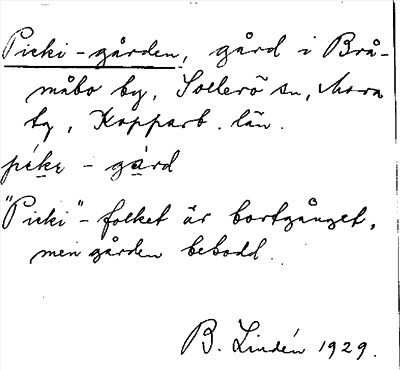 Picki-gården, gård i Brå-
måbo by, Sollerö sn, Mora
tg, Kopparb. län.
péke - gård
"Picki"-folket är bortgånget,
men gården bebodd.
B. Lindén 1929.